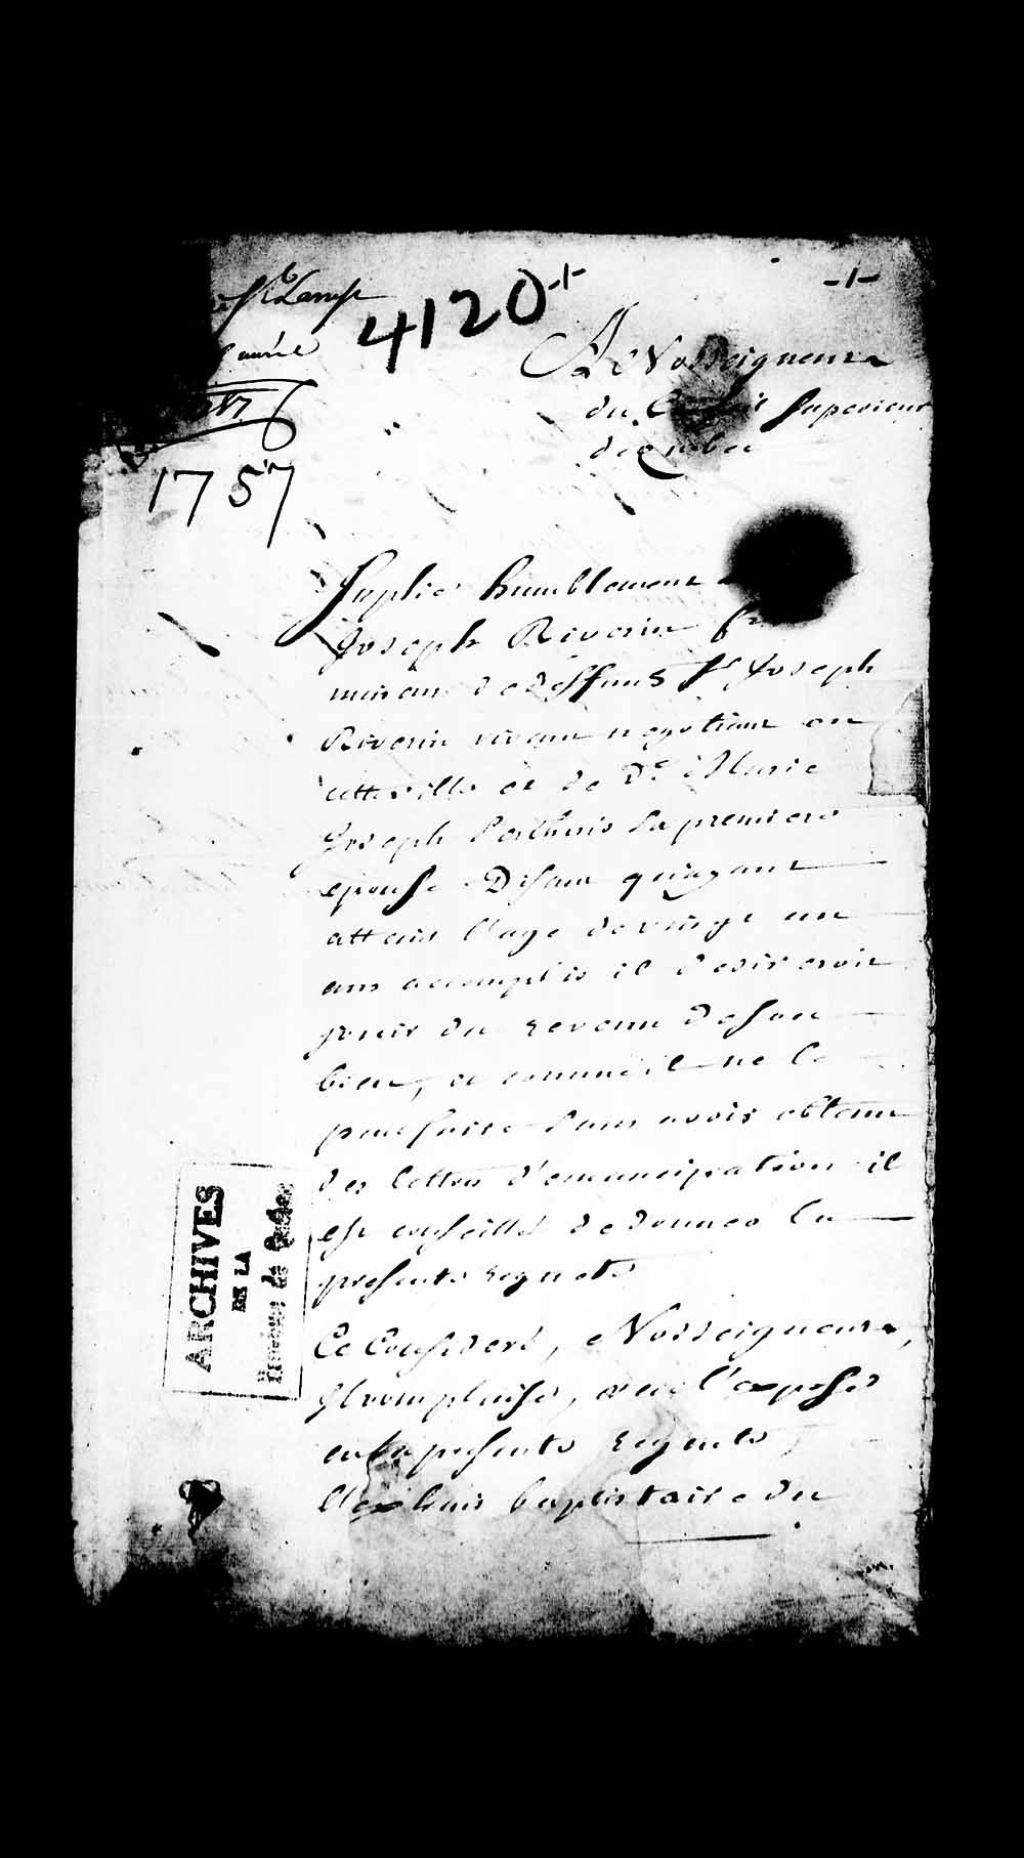 4120
-1-
A Nosseigneurs
du Conseil Superieur
de Quebec
1757
Suplie humblement
Joseph Riverin fils
mineur de deffunt Sr Joseph
Riverin vivant negotiant en
cette ville et de De Marie
Joseph Perthuis sa premiere
epouse Disant qu'ayant
atteint l'age de vingt un
ans accomplis il desireroit
jouir du revenu de son
bien, et comme il ne le
peut faire sans avoir obtenu
des lettres d'emancipation il
est conseillé de donner la
presente requete
Ce Consideré, Nosseigneurs,
Il vous plaise, veu l'exposé
en la presente requete,
l'extrait baptistaire du
ARCHIVES
DE LA
Province de Québec